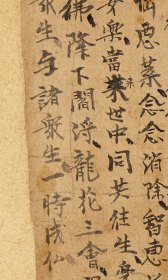 念念消除智惠
樂當來世中同共往生
佛降下閻浮龍花三會
衆生与諸衆生一時成仏